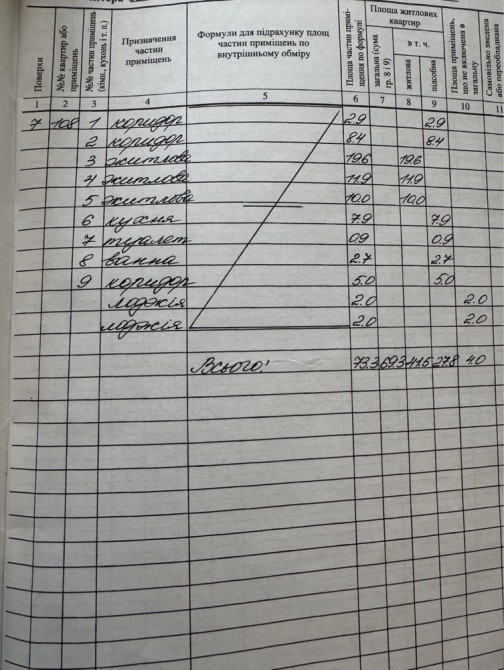 Поверхи
№№ квартир або приміщень
№№ частин приміщень (кімн, кухонь і т. п.)
Призначення частин приміщень
Формули для підрахунку площ частин приміщень по внутрішньому обміру
Площа частин приміщення по формулі
Площа житлових квартир
загальна (сума гр. 8 і 9)
в т. ч.
житлова
підсобна
Площа приміщень, що не включена в загальну
Самовільно зведена або переобладнана
1 2 3 4 5 6 7 8 9 10 11
7 108 1 коридор 2.9 2.9
2 коридор 8.4 8.4
3 житлова 19.6 19.6
4 житлова 11.9 11.9
5 житлова 10.0 10.0
6 кухня 7.9 7.9
7 туалет 0.9 0.9
8 ванна 2.7 2.7
9 коридор 5.0 5.0
лоджія 2.0 2.0
лоджія 2.0 2.0
Всього: 73.3 69.3 41.5 27.8 4.0